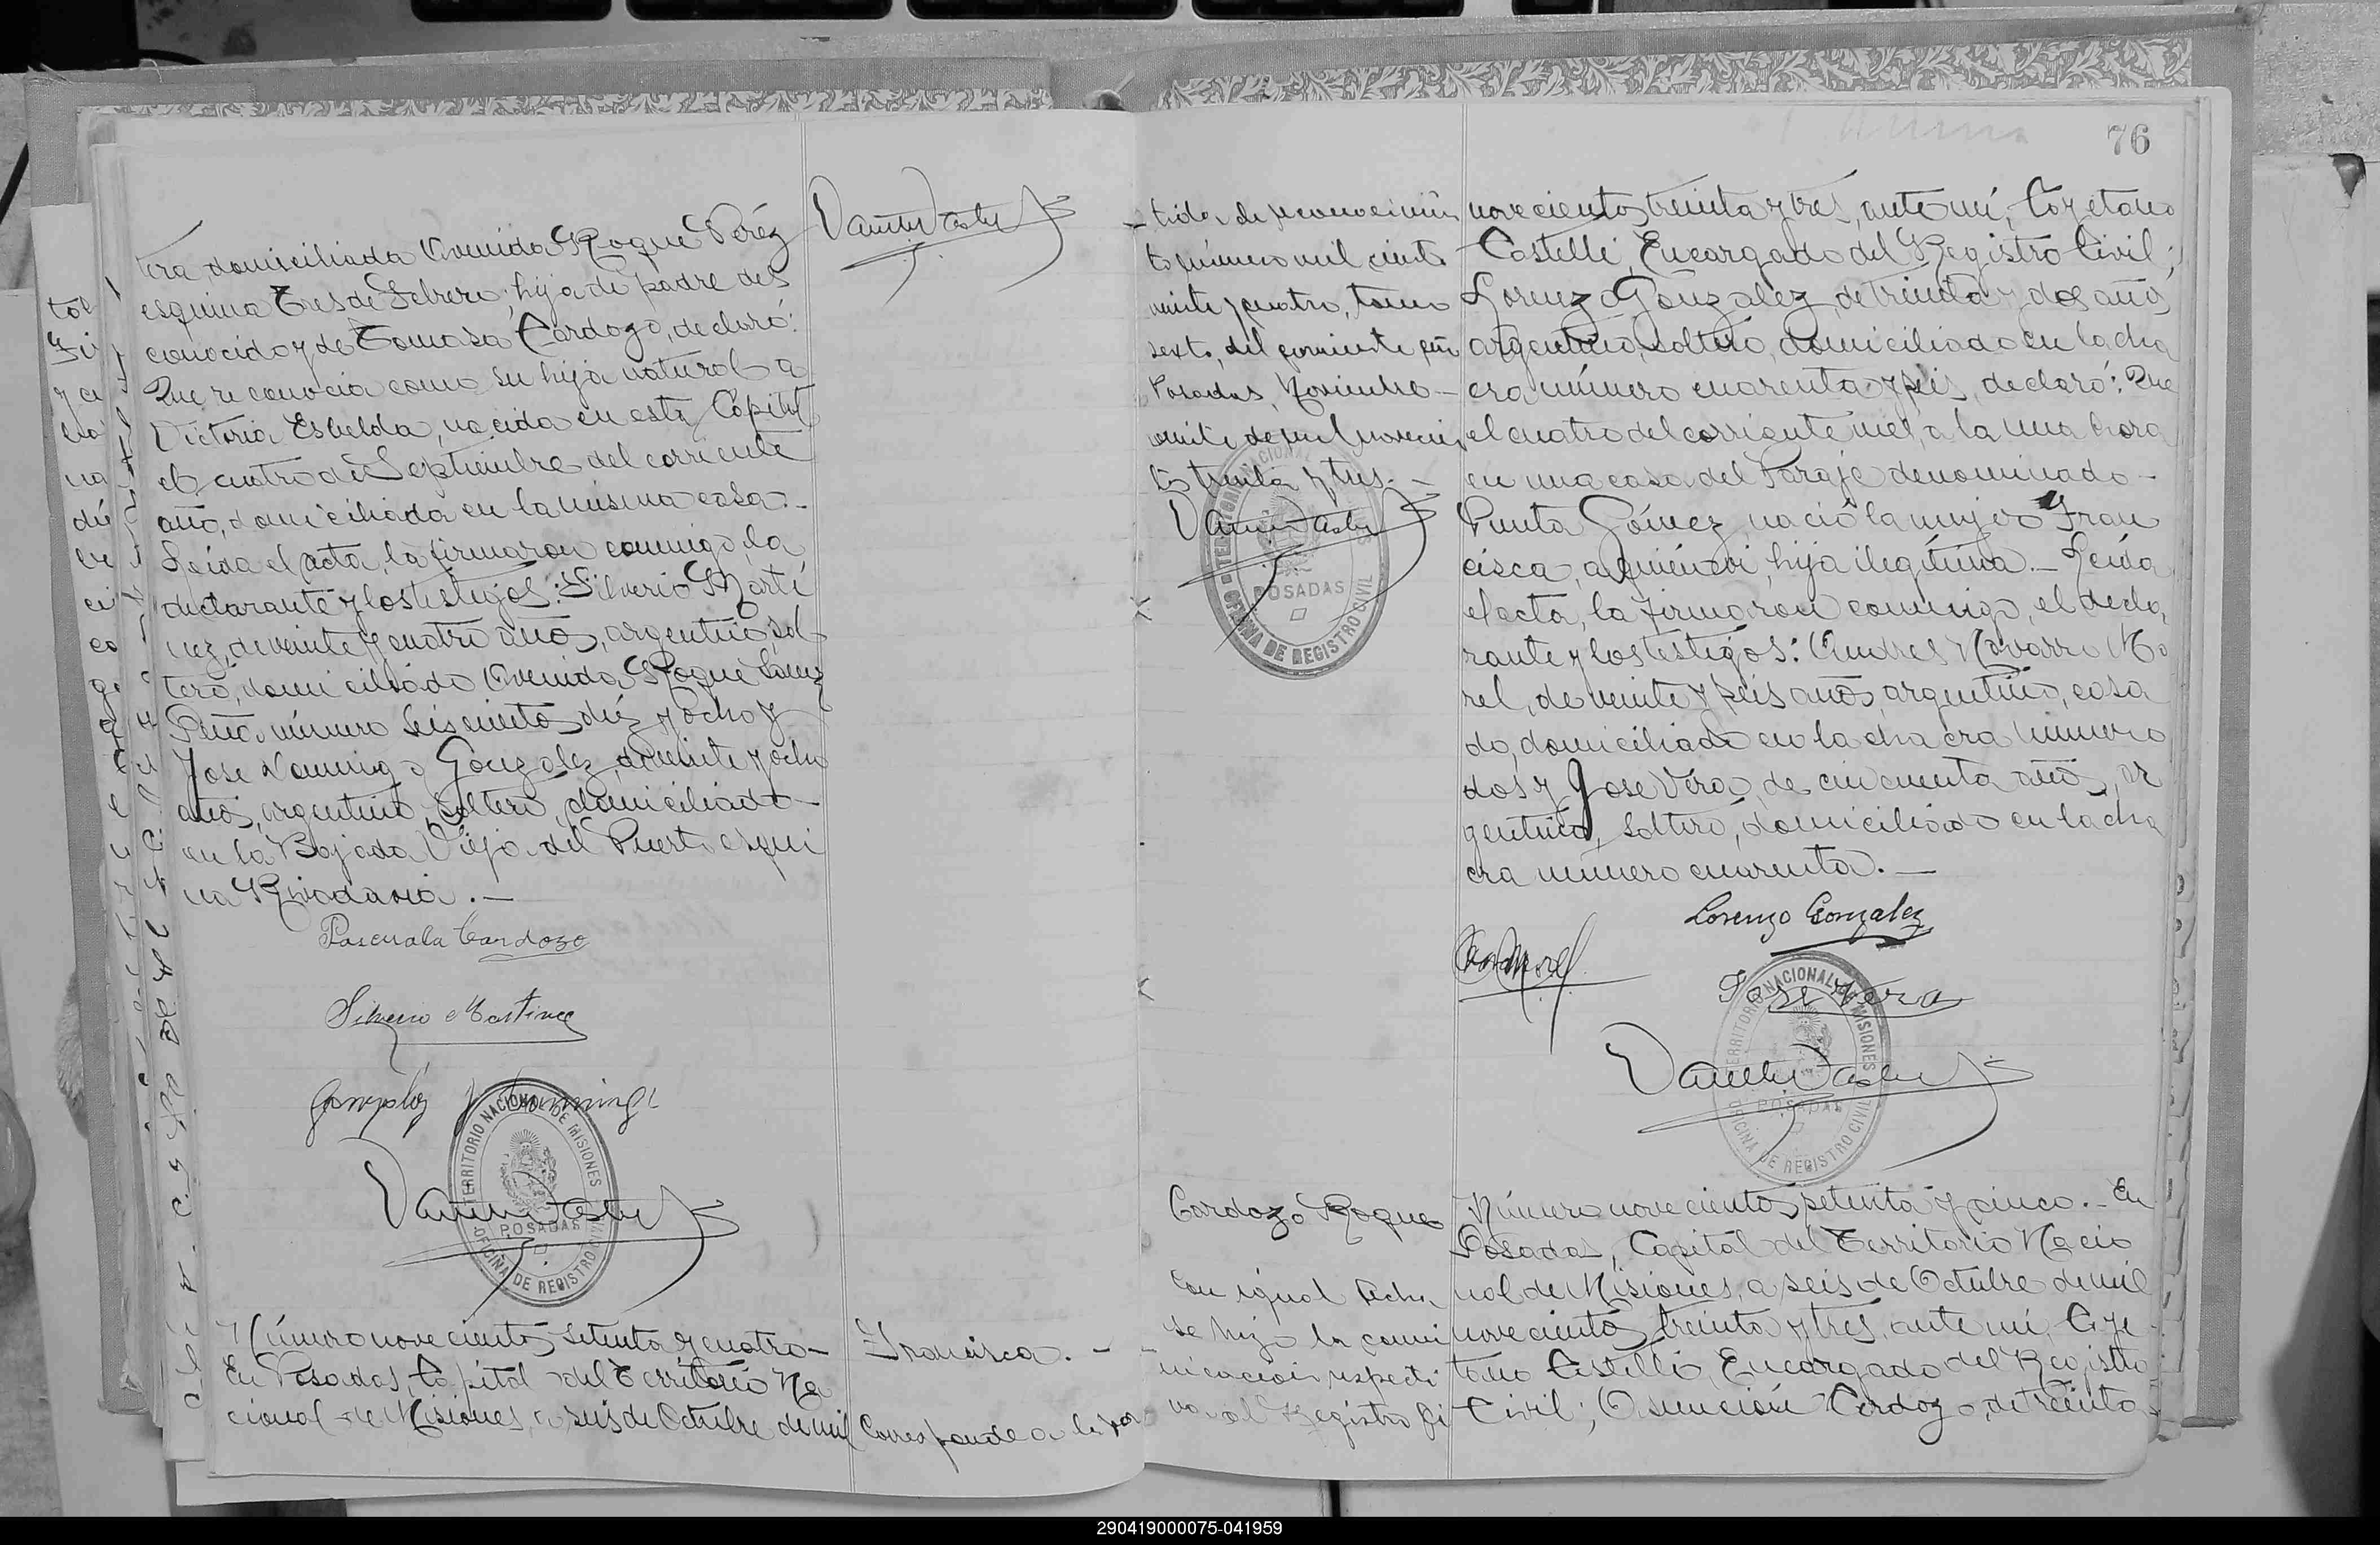 tera, domiciliada Avenida Roque Peréz
esquina Tres de Febrero, hija de padre des
conocido y de Tomasa Cardozo, declaró:
Que reconocia como su hija natural a
Victoria Esbelda, nacida en esta Capital
el cuatro de Septiembre del corriente
año, domiciliada en la misma casa.-
Leida el acta, la firmaron conmigo, la
declarante y los testigos: Silverio Marti
nez, de veinte y cuatro años, argentino, sol
tero, domiciliado Avenida Roque Saenz
Peña número seiscientos diez y ocho y
Jose Domingo Gonzalez, de veinte y ocho
años, argentino, soltero, domiciliado-
en la Bajada Vieja del Puerto esqui
na Rivadavia.-
Pascuala Cardozo
Silverio Martinez
Gonzalez J Domingo
TERRITORIO NACIONAL DE MISIONES
POSADAS
OFICINA DE REGISTRO CIVIL
Número novecientos setenta y cuatro-
En Posadas, Capital del Territorio Na
cional de Misiones, a seis de Octubre de mil
Francisca.-
Corresponde a la par
76
tida de reconocimien
to número mil ciento
veinte y cuatro, tomo
sexto, del corriente año
Posadas, Noviembre-
veinte de mil novecien
tos treinta y tres.-
TERRITORIO NACIONAL
POSADAS
OFICINA DE REGISTRO CIVIL
novecientos treinta y tres, ante mí, Cayetano
Castelli, Encargado del Registro Civil;
Lorenzo Gonzalez, de treinta y dos años,
argentino, soltero, domiciliado en la cha
cra número cuarenta y seis, declaró: Que
el cuatro del corriente mes, a la una hora
en una casa del Paraje denominado-
Punta Gómez, nació la mujer Fran
cisca, a quien vi, hija ilegítima.- Leida
el acta, la firmaron conmigo, el decla
rante y los testigos: Andres Navarro Mo
rel, de veinte y seis años, argentino, casa
do, domiciliado en la chacra número
dos y Jose Vera, de cincuenta años, ar
gentino, soltero, domiciliado en la cha
cra número cuarenta.-
Lorenzo Gonzalez
Jose Vera
TERRITORIO NACIONAL DE MISIONES
POSADAS
OFICINA DE REGISTRO CIVIL
Cardozo Roque
Con igual fecha
se hizo la comu
nicación respecti
va al Registro Ci
Número novecientos setenta y cinco.- En
Posadas, Capital del Territorio Nacio
nal de Misiones, a seis de Octubre de mil
novecientos treinta y tres, ante mí, Caye
tano Castelli, Encargado del Registro
Civil; Asunción Cardozo, de treinta
290419000075-041959